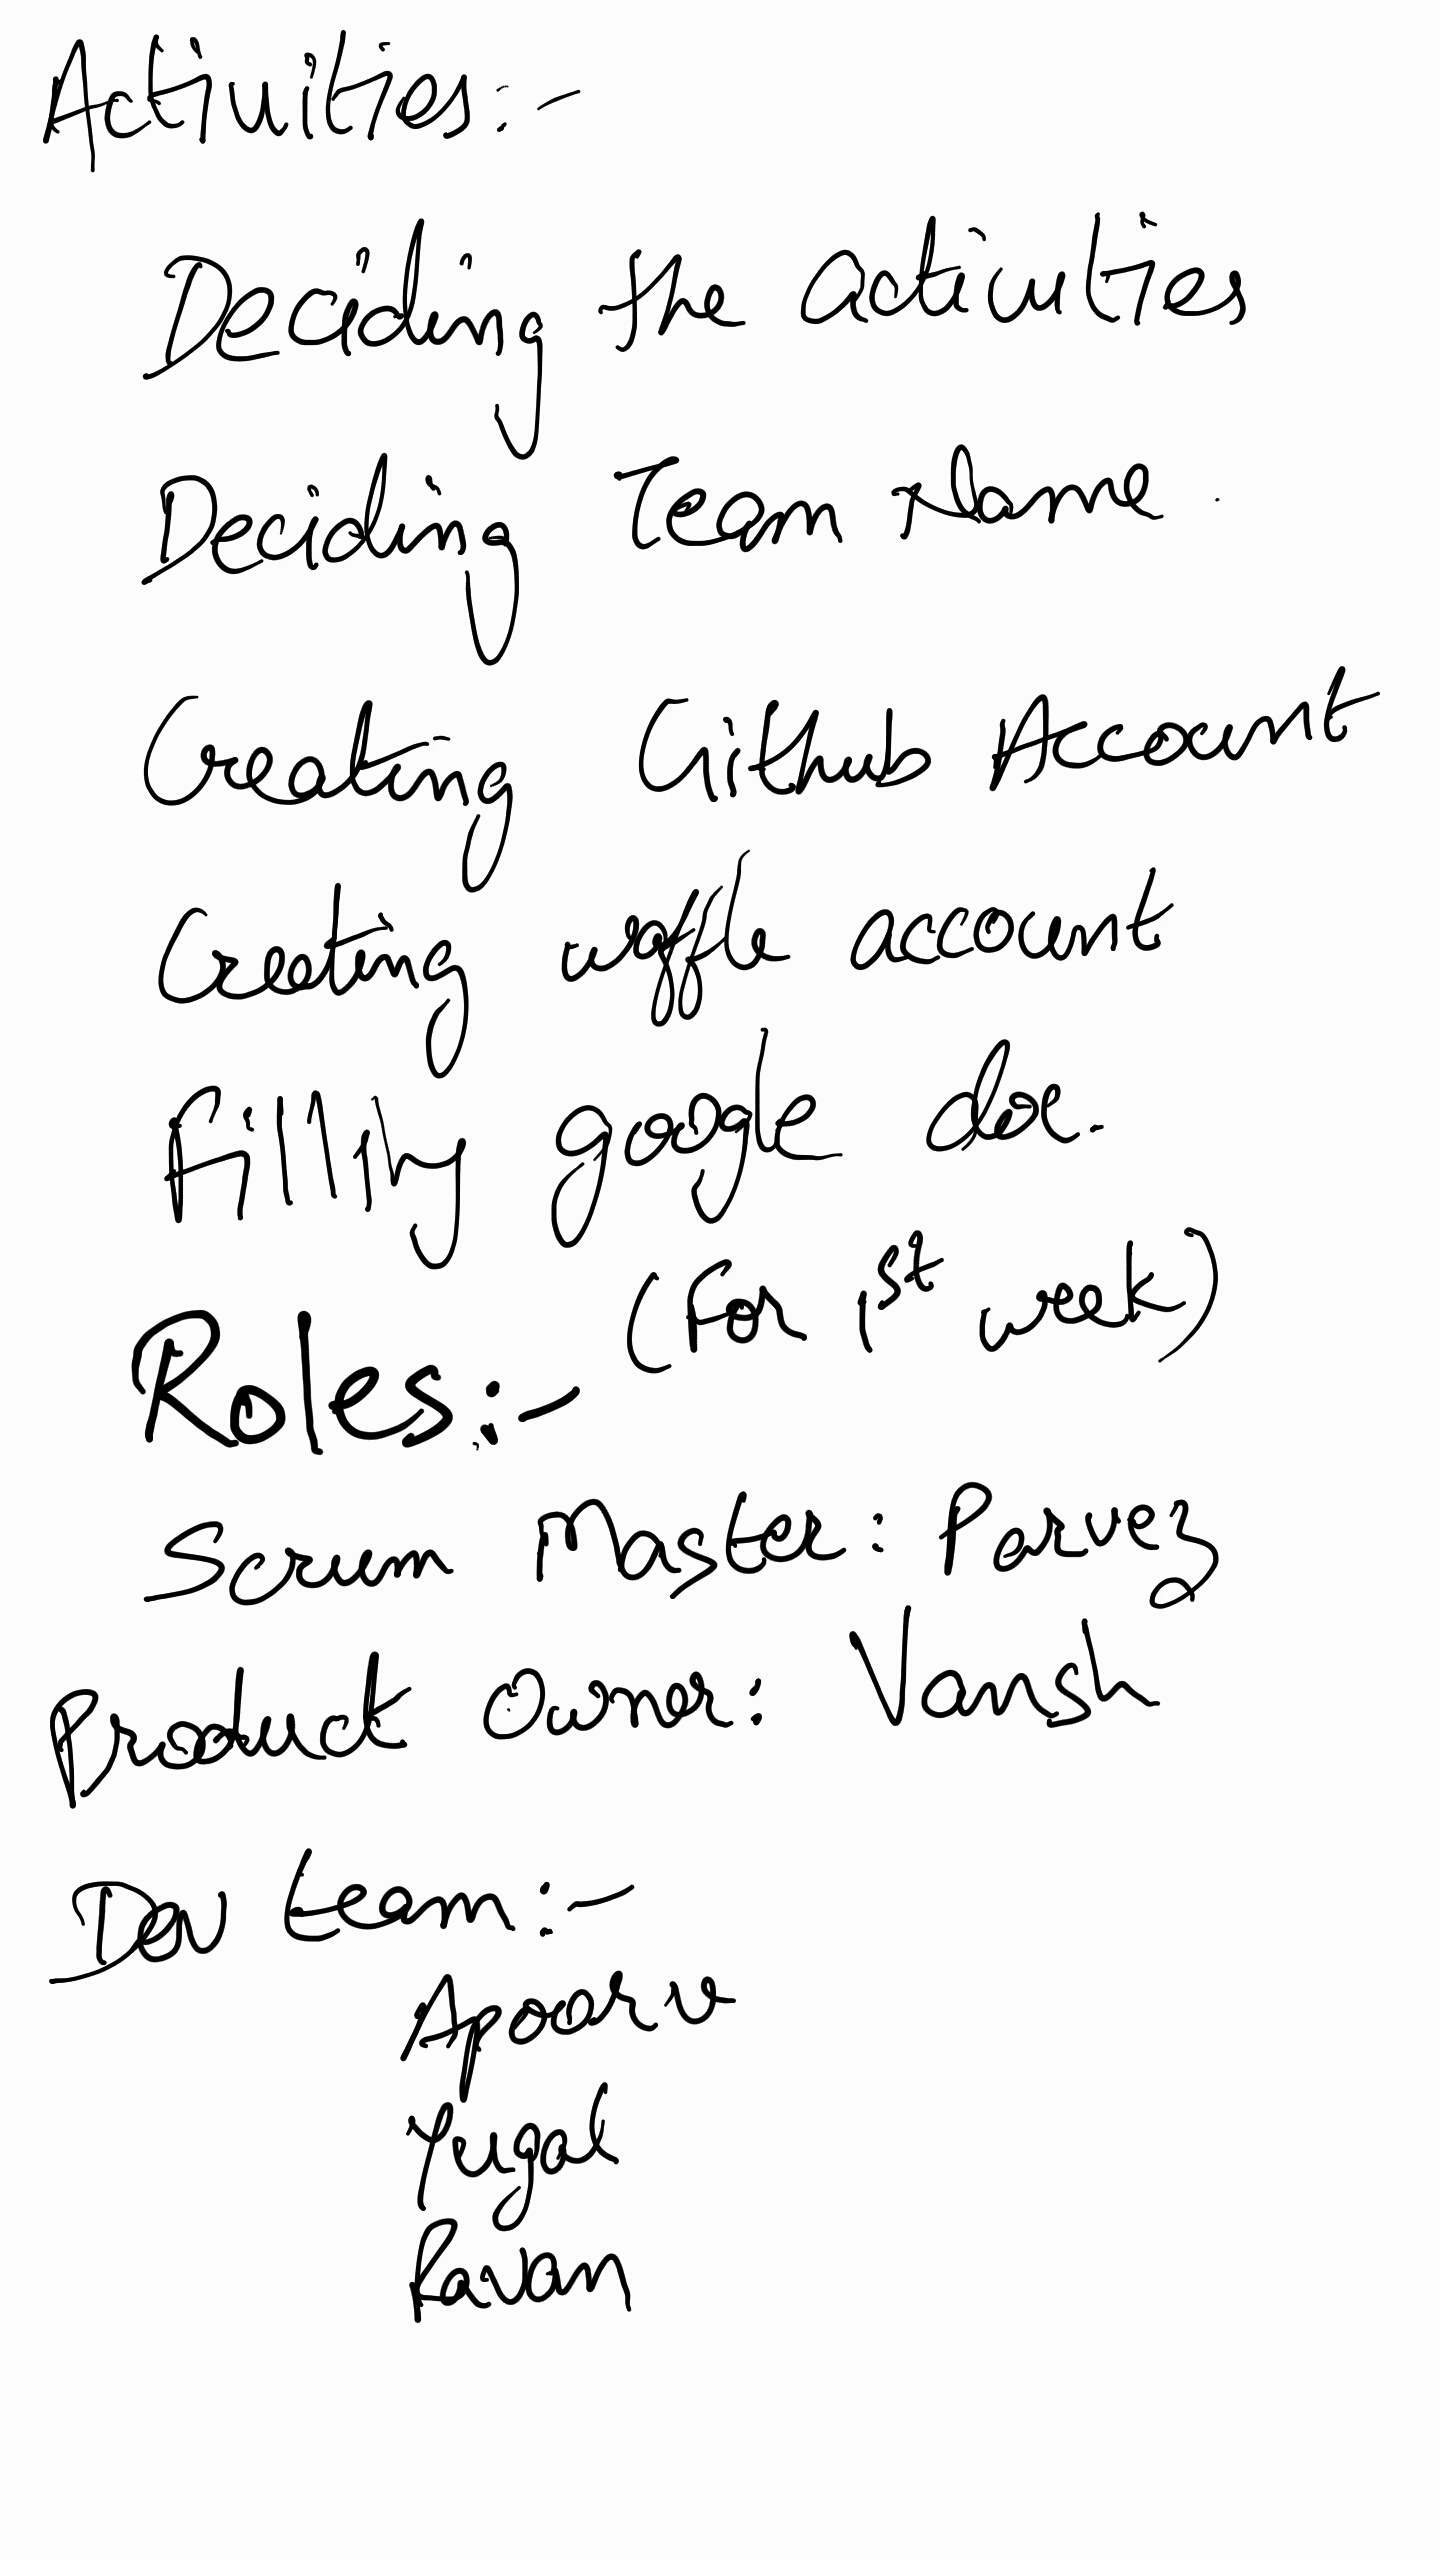 Activities:-
Deciding the activities
Deciding Team Name.
Creating Github Account
Creating waffle account
Filling google doc.
Roles:- (For 1st week)
Scrum Master: Parvez
Product Owner: Vansh
Dev team:-
Apoorv
Yugal
Pavan